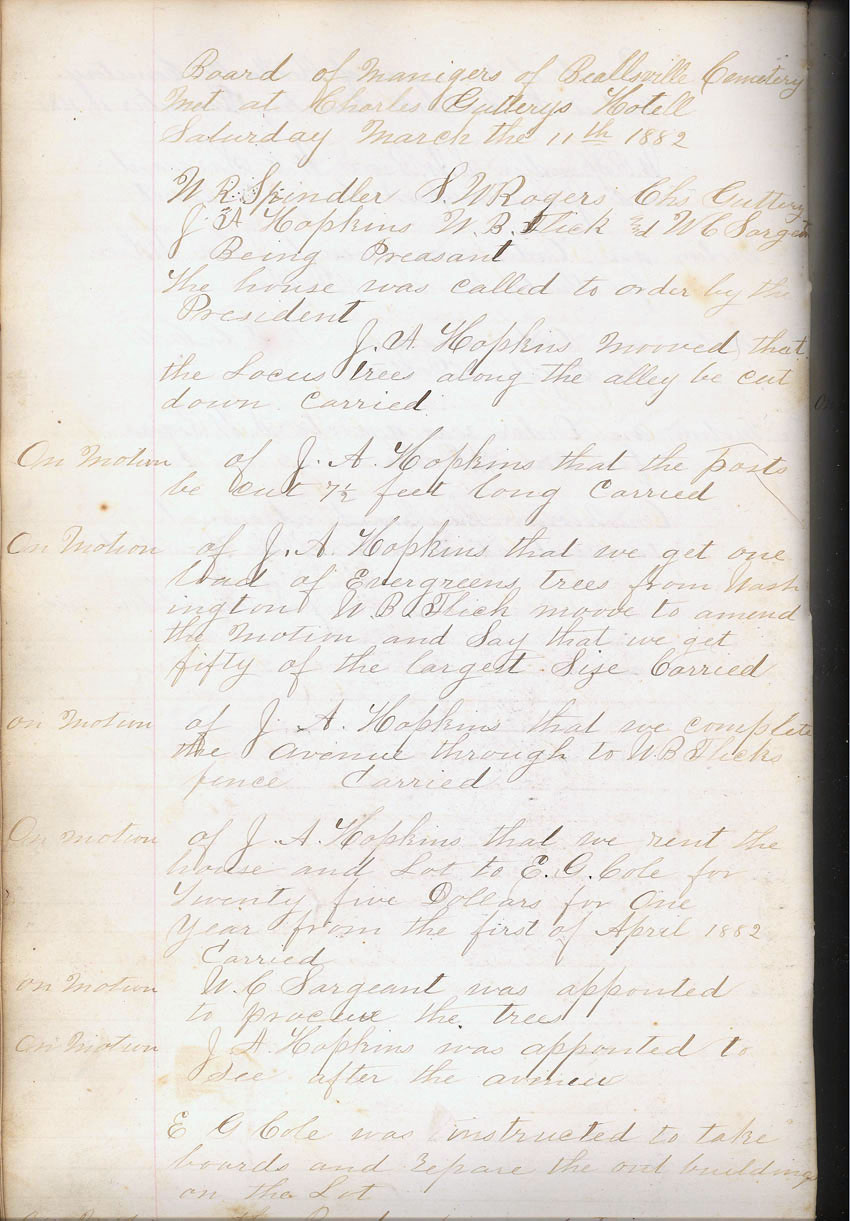 Board of Manigers of Beallsville Cemetery
Met at Charles Gutterys Hotell
Saturday March the 11th 1882
W R Spindler S. W Rogers Chs Guttery
J A Hopkins W. B. Flick and W C Sargent
Being Preasant
the house was called to order by the
President
J. A Hopkins mooved that
the Locus trees along the alley be cut
down carried
On Motion of J. A. Hopkins that the posts
be cut 7½ feet long Carried
On Motion of J. A. Hopkins that we get one
load of Evergreens trees from Wash
ington W. B. Flick moove to amend
the Motion and Say that we get
fifty of the largest Size Carried
on Motion of J. A. Hopkins that we complete
the avenue through to W. B Flicks
fence Carried
On motion of J. A. Hopkins that we rent the
house and Lot to E. G. Cole for
Twenty five Dollars for One
Year from the first of April 1882
Carried
on Motion W. C Sargeant was apponted
to procure the trees
On Motion J A Hopkins was apponted to
See after the avenue
E G Cole was instructed to take
boards and repare the out buildings
on the Lot